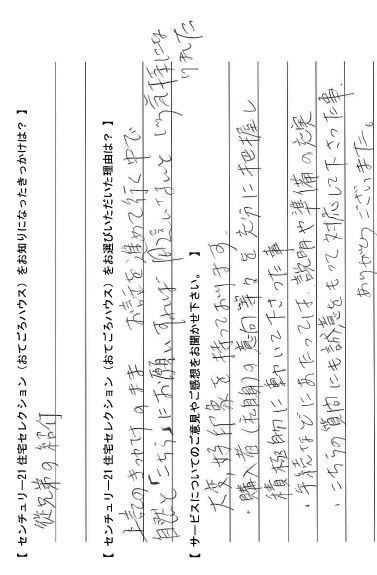 【 センチュリー21住宅セレクション(おてごろハウス)をお知りになったきっかけは? 】
従兄弟の紹介
【 センチュリー21住宅セレクション(おてごろハウス)をお選びいただいた理由は? 】
上記のきっかけのまま お話を進めて行く中で
自然と「こちら」にお願いすれば 間違いないと いう気持になりました
【 サービスについてのご意見やご感想をお聞かせ下さい。 】
大変、好印象を持っております。
・購入者(夫婦)の意向等々を充分に把握し
積極的に動いて下さった事
・手続などにあたっては、説明や準備の充実
・こちらの質問にも誠意をもって対応して下さった事。
ありがとうございました。